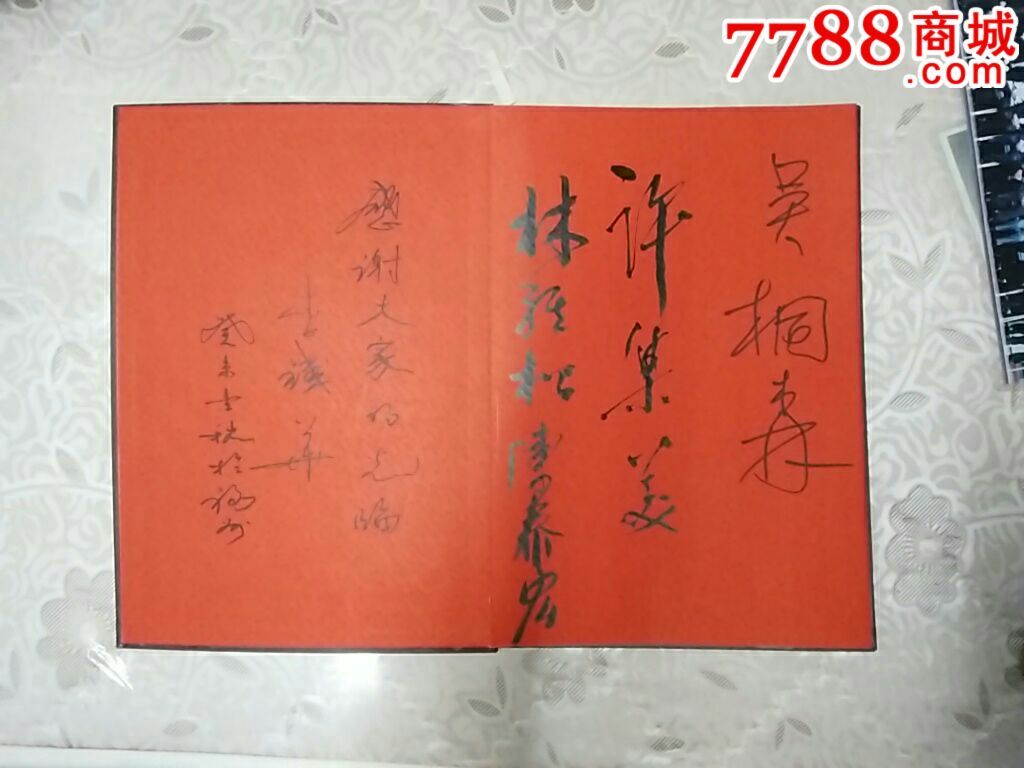 7788商城
.com
吴桐森
许集美
林雅松
陈泰宏
感谢大家的光临
李
华
癸未
秋于福州